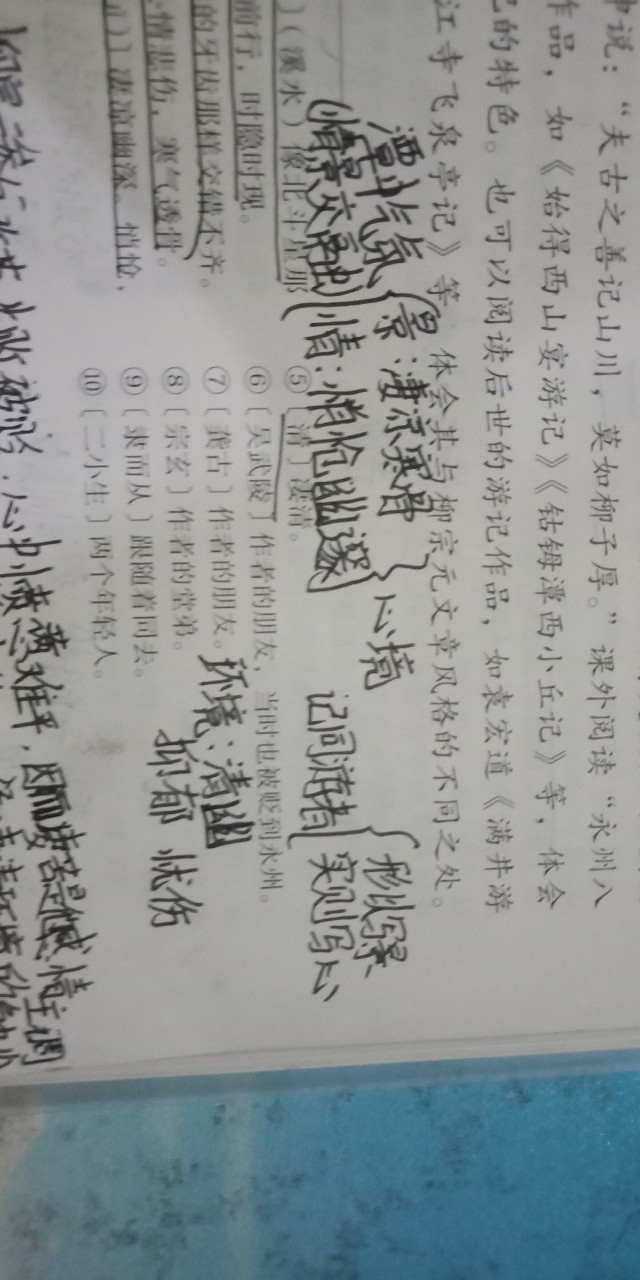 说：“夫古之善记山川，莫如柳子厚。”课外阅读“永州八
作品，如《始得西山宴游记》《钴鉧潭西小丘记》等，体会
的特色。也可以阅读后世的游记作品，如袁宏道《满井游
江寺飞泉亭记》等，体会其与柳宗元文章风格的不同之处。
潭中气氛
(情景交融)
景：凄凉寒骨
情：悄怆幽邃
心境
记同游者
形似写景
实则写心
〕（溪水）像北斗星那
前行，时隐时现。
的牙齿那样交错不齐。
情悲伤，寒气透骨。
凄凉幽深。悄怆，
⑤〔清〕凄清。
⑥〔吴武陵〕作者的朋友，当时也被贬到永州。
⑦〔龚古〕作者的朋友。
⑧〔宗玄〕作者的堂弟。
⑨〔隶而从〕跟随着同去。
⑩〔二小生〕两个年轻人。
环境：清幽
抑郁 忧伤
心中愤懑难平，因而凄苦是他感情主调